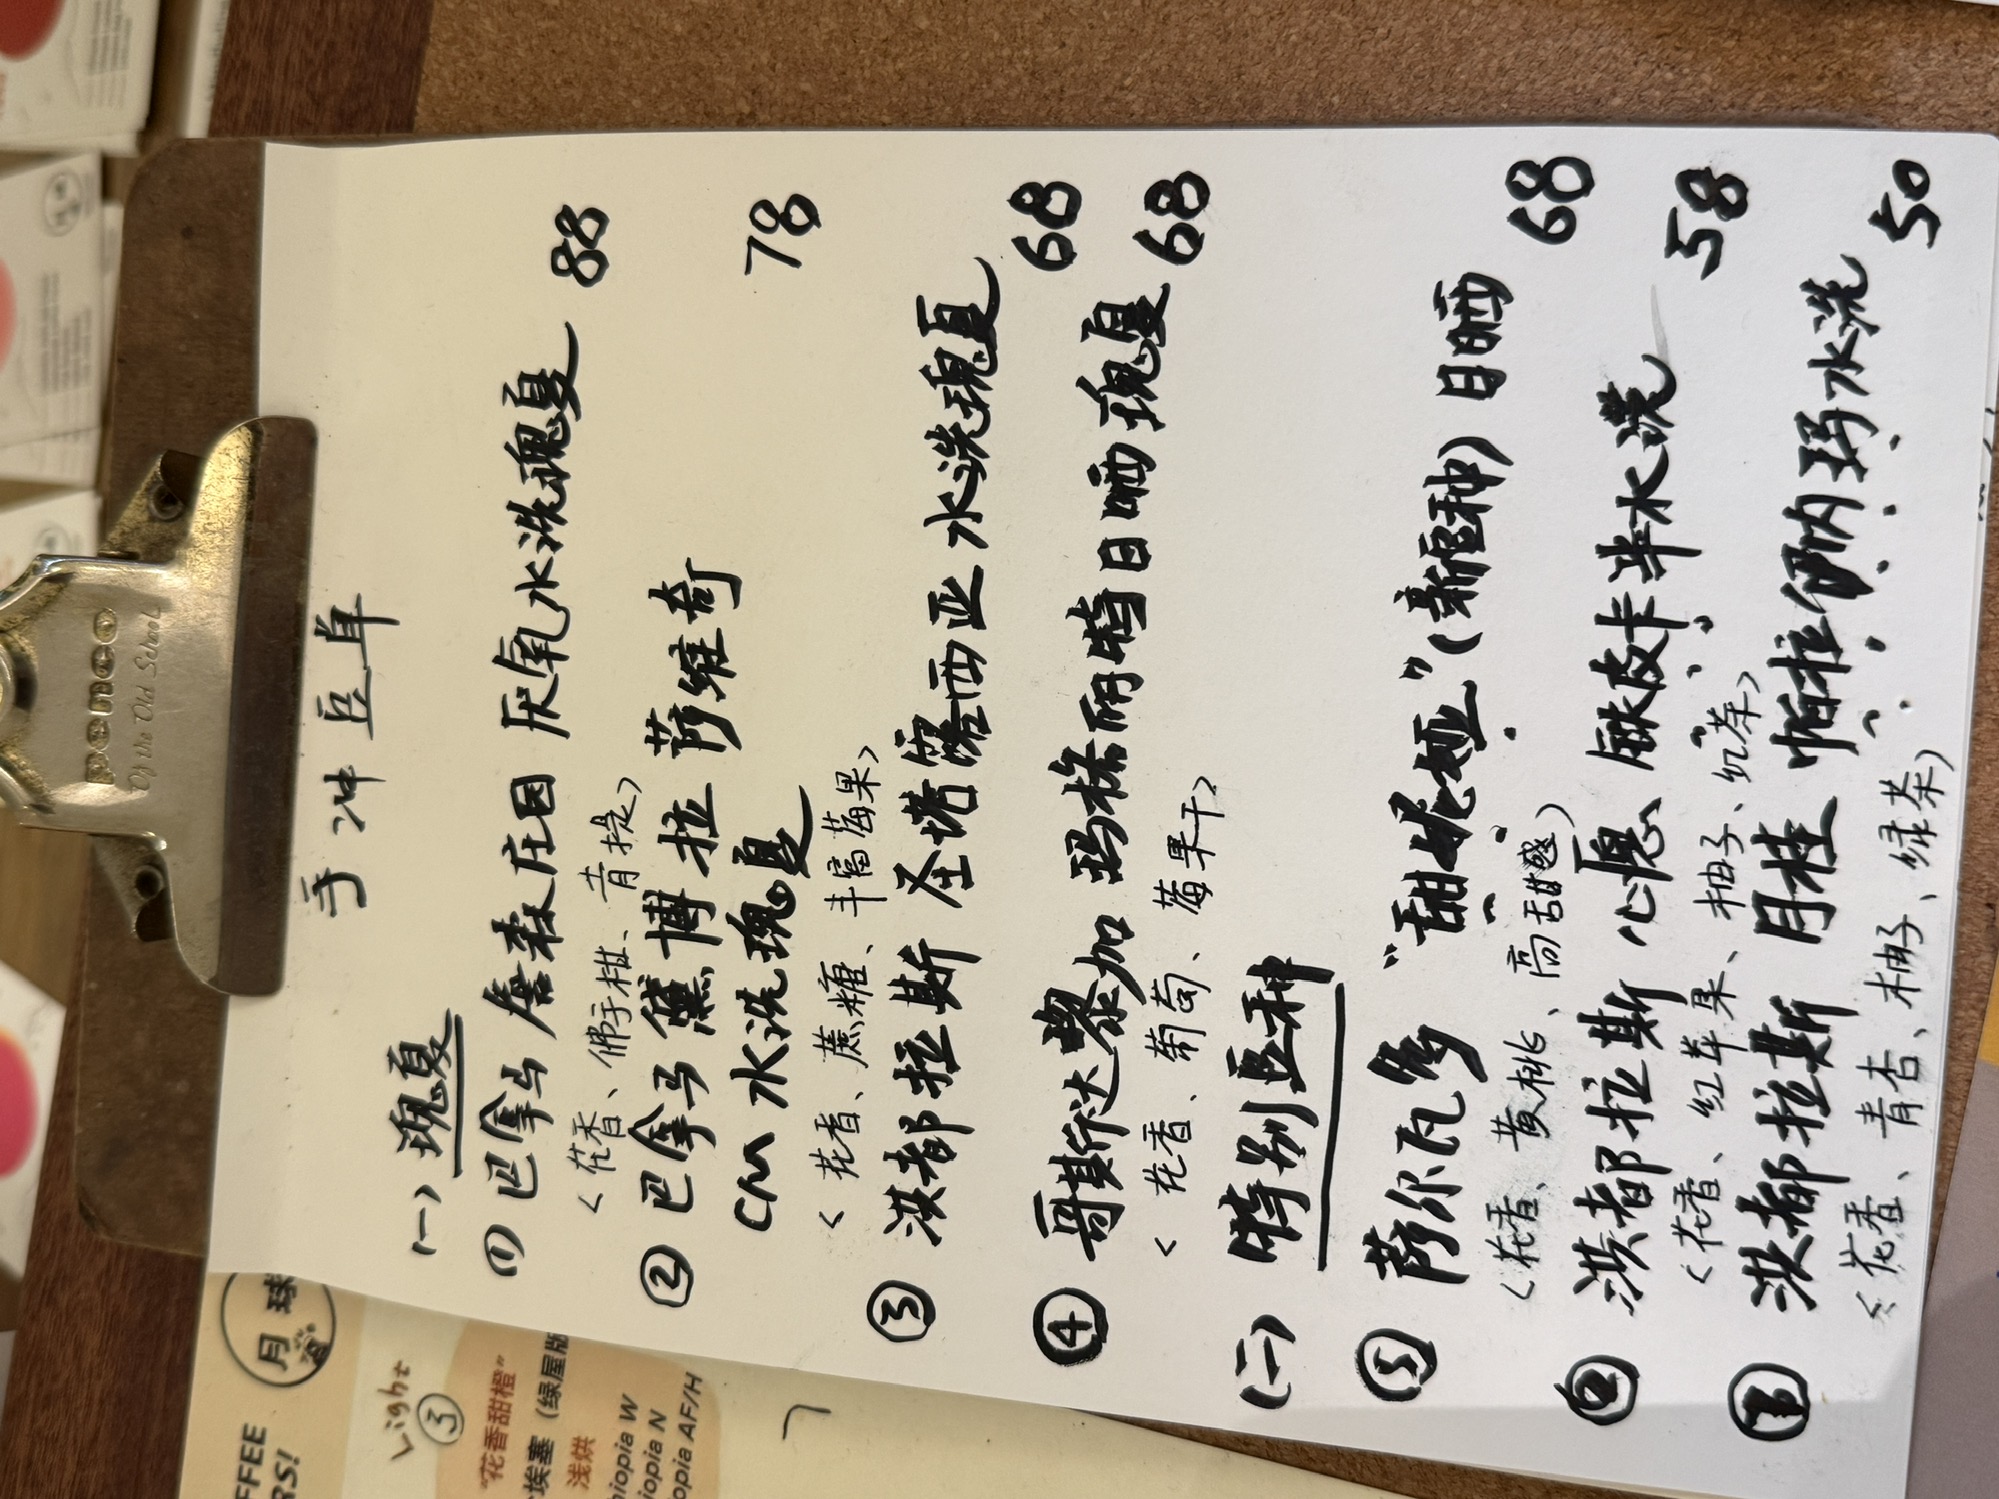 penco
Of the Old School
手冲豆单
(一) 瑰夏
① 巴拿马 詹森庄园 厌氧水洗瑰夏 88
<花香、佛手柑、青提>
② 巴拿马 黛博拉 莎维奇 78
CM 水洗瑰夏
<花香、蔗糖、丰富莓果>
③ 洪都拉斯 圣塔露西亚 水洗瑰夏 68
④ 哥斯达黎加 玛格丽特日晒瑰夏 68
<花香、葡萄、莓果干>
(二) 特别豆种
⑤ 萨尔瓦多 “甜妮娅”(新豆种) 日晒 68
<花香、黄桃、高甜感>
⑥ 洪都拉斯 心愿 帕卡半水洗 58
<花香、红苹果、柚子、红茶>
洪都拉斯 月桂 帕拉伊内玛水洗 50
<花香、青杏、柚子、绿茶>
FFEE
RS!
月球
Light
③
“花香甜橙”
埃塞 (绿屋版
浅烘
hiopia W
iopia N
opia AF/H